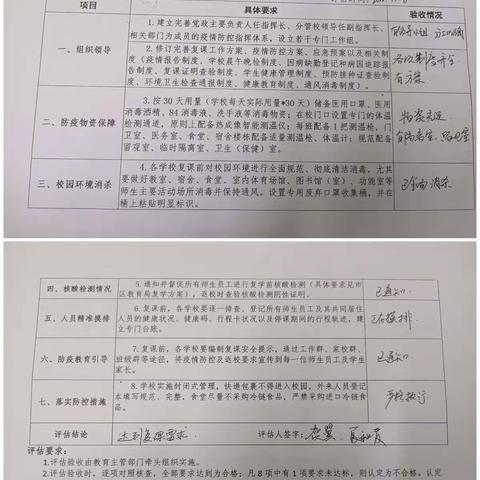 项目
具体要求
验收情况
一、组织领导
1.建立完善党政主要负责人任指挥长、分管校领导任副指挥长、
相关部门为成员的疫情防控指挥体系，设立若干专门工作组。
2.修订完善复课工作方案、疫情防控方案、应急预案以及相关制
度（疫情报告制度、学校晨午晚检制度、因病缺勤登记和病因追踪
报告制度、复课证明查验制度、学生健康管理制度、预防接种证查验
制度、环境卫生检查通报制度、健康教育制度、通风消毒制度）。
各项制度齐全
有方案
二、防疫物资保障
3.按30天用量（学校每天实际用量*30天）储备医用口罩、医用
消毒酒精、84消毒液、洗手液等消毒物资；在校门口设置专门的体温
检测通道，原则上配备热成像智能测温仪；每班配备1把测温枪，门
卫室、医务室、食堂、宿舍楼栋配备适量测温枪、体温计；规范配备
留观室、临时隔离室、卫生（保健）室。
物资充足
三、校园环境消杀
4.各学校复课前对校园环境进行全面规范、彻底清洁消毒，尤其
要做好教室、宿舍、食堂、室内体育场馆、图书馆（室）、功能室等
师生主要活动场所消毒并保持通风。设置专用废弃口罩收集桶，并在
桶上粘贴明显标识。
已全面消杀
四、核酸检测情况
5.通知并督促所有师生员工进行复学前核酸检测（具体要求见市
区教育局复学方案），返校时查验核酸检测阴性证明。
已通知
五、人员精准摸排
6.复课前，各学校要逐一排查、登记所有师生员工及其共同居住
人员的健康状况、健康码、行程卡状况以及停课期间的行程轨迹，建
立专门台账。
已摸排
六、防疫教育引导
7.复课前，各学校要编制复课安全提示，通过工作群、家校群、
班级群等途径，将疫情防控及返校要求宣传到每一位师生员工及学生
家长。
已通知
七、落实防控措施
8.学校实施封闭式管理，快递包裹不得进入校园，外来人员登记
本填写规范、完整，食堂尽量不采购冷链食品，严禁采购进口冷链食
品。
严格执行
评估结论
达到复课要求.
评估人签字：
评估要求：
1.评估验收由教育主管部门牵头组织实施。
2.评估验收时，逐项对照核查，全部要求达到为合格；凡8项中有1项要求未达标，则认定为不合格。认定